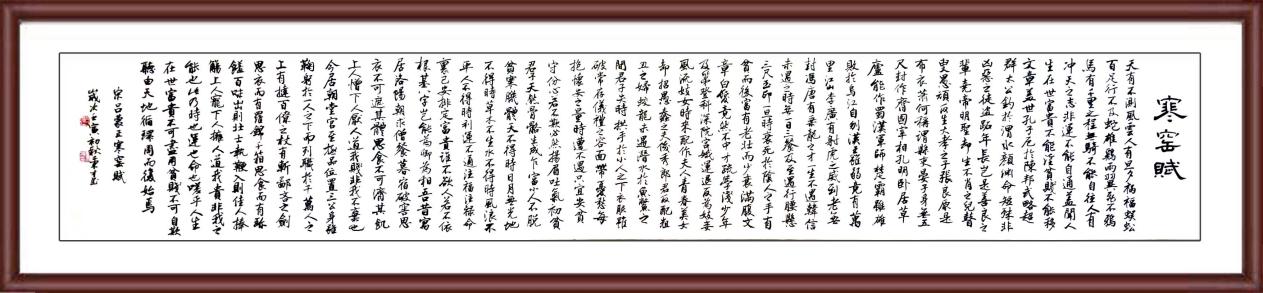 寒窑賦
天有不測風雲人有旦夕禍福蜈蚣
百足行不及蛇雄鷄两翼飛不鴉
馬有千里之程無騎不能自往人有
冲天之志非運不能自通盖聞人
生在世富貴不能淫貧賤不能移
文章盖世孔子厄於陳邦武略超
群太公釣於渭水顔渊命短殊非
凶惡之徒盗跖年長豈是善良之
輩堯帝明聖却生不肖之兒瞽
叟愚頑反生大孝之子張良原是
布衣蕭何稱謂縣吏晏子身無五
尺封作齊國宰相孔明卧居草
廬能作蜀漢軍師楚霸雖雄
敗於烏江自刎漢王雖弱竟有萬
里江山李廣有射虎之威到老無
封馮唐有乘龍之才一生不遇韓信
未遇之時每日三餐及至遇行腰懸
三尺玉印一旦時衰死於陰人之手有
貧而後富有老壮而少衰滿腹文
章白髮竟然不中才疏學淺少年
及第登科深院宫娥運退反為妓妾
風流妓女時來配作夫人青春美女
却招愚蠢之夫俊秀郎君反配粗
丑之婦蛟龍未遇潜水於魚鱉之
間君子失時拱手於小人之下衣服雖
破常存儀禮之容面帶憂愁每
抱懷安之量時遭不遇只宜安貧
守份心若不欺必然揚眉吐氣初貧
君子天然骨骼生成乍富小人不脱
貧寒肌體天不得時日月無光地
不得時草木不生水不得時風浪不
平人不得時利運不通注福注禄命
裏已安排定富貴誰不欲人若不依
根基八字豈能為卿為相吾昔寓
居洛陽朝求僧餐暮宿破窑思
衣不可遮其體思食不可濟其飢
上人憎下人厭人道我賤非我不棄也
今居朝堂官至極品位置三公身雖
鞠躬於一人之下而列職於千萬人之
上有撻百僚之杖有斬鄙吝之劍
思衣而有羅錦千箱思食而有珍
饈百味出則壮士執鞭入則佳人捧
觴上人寵下人擁人道我貴非我之
能也此乃時也運也命也嗟乎人生
在世富貴不可盡用貧賤不可自欺
聽由天地循環周而復始焉
宋吕蒙正寒窑賦
寅初秋